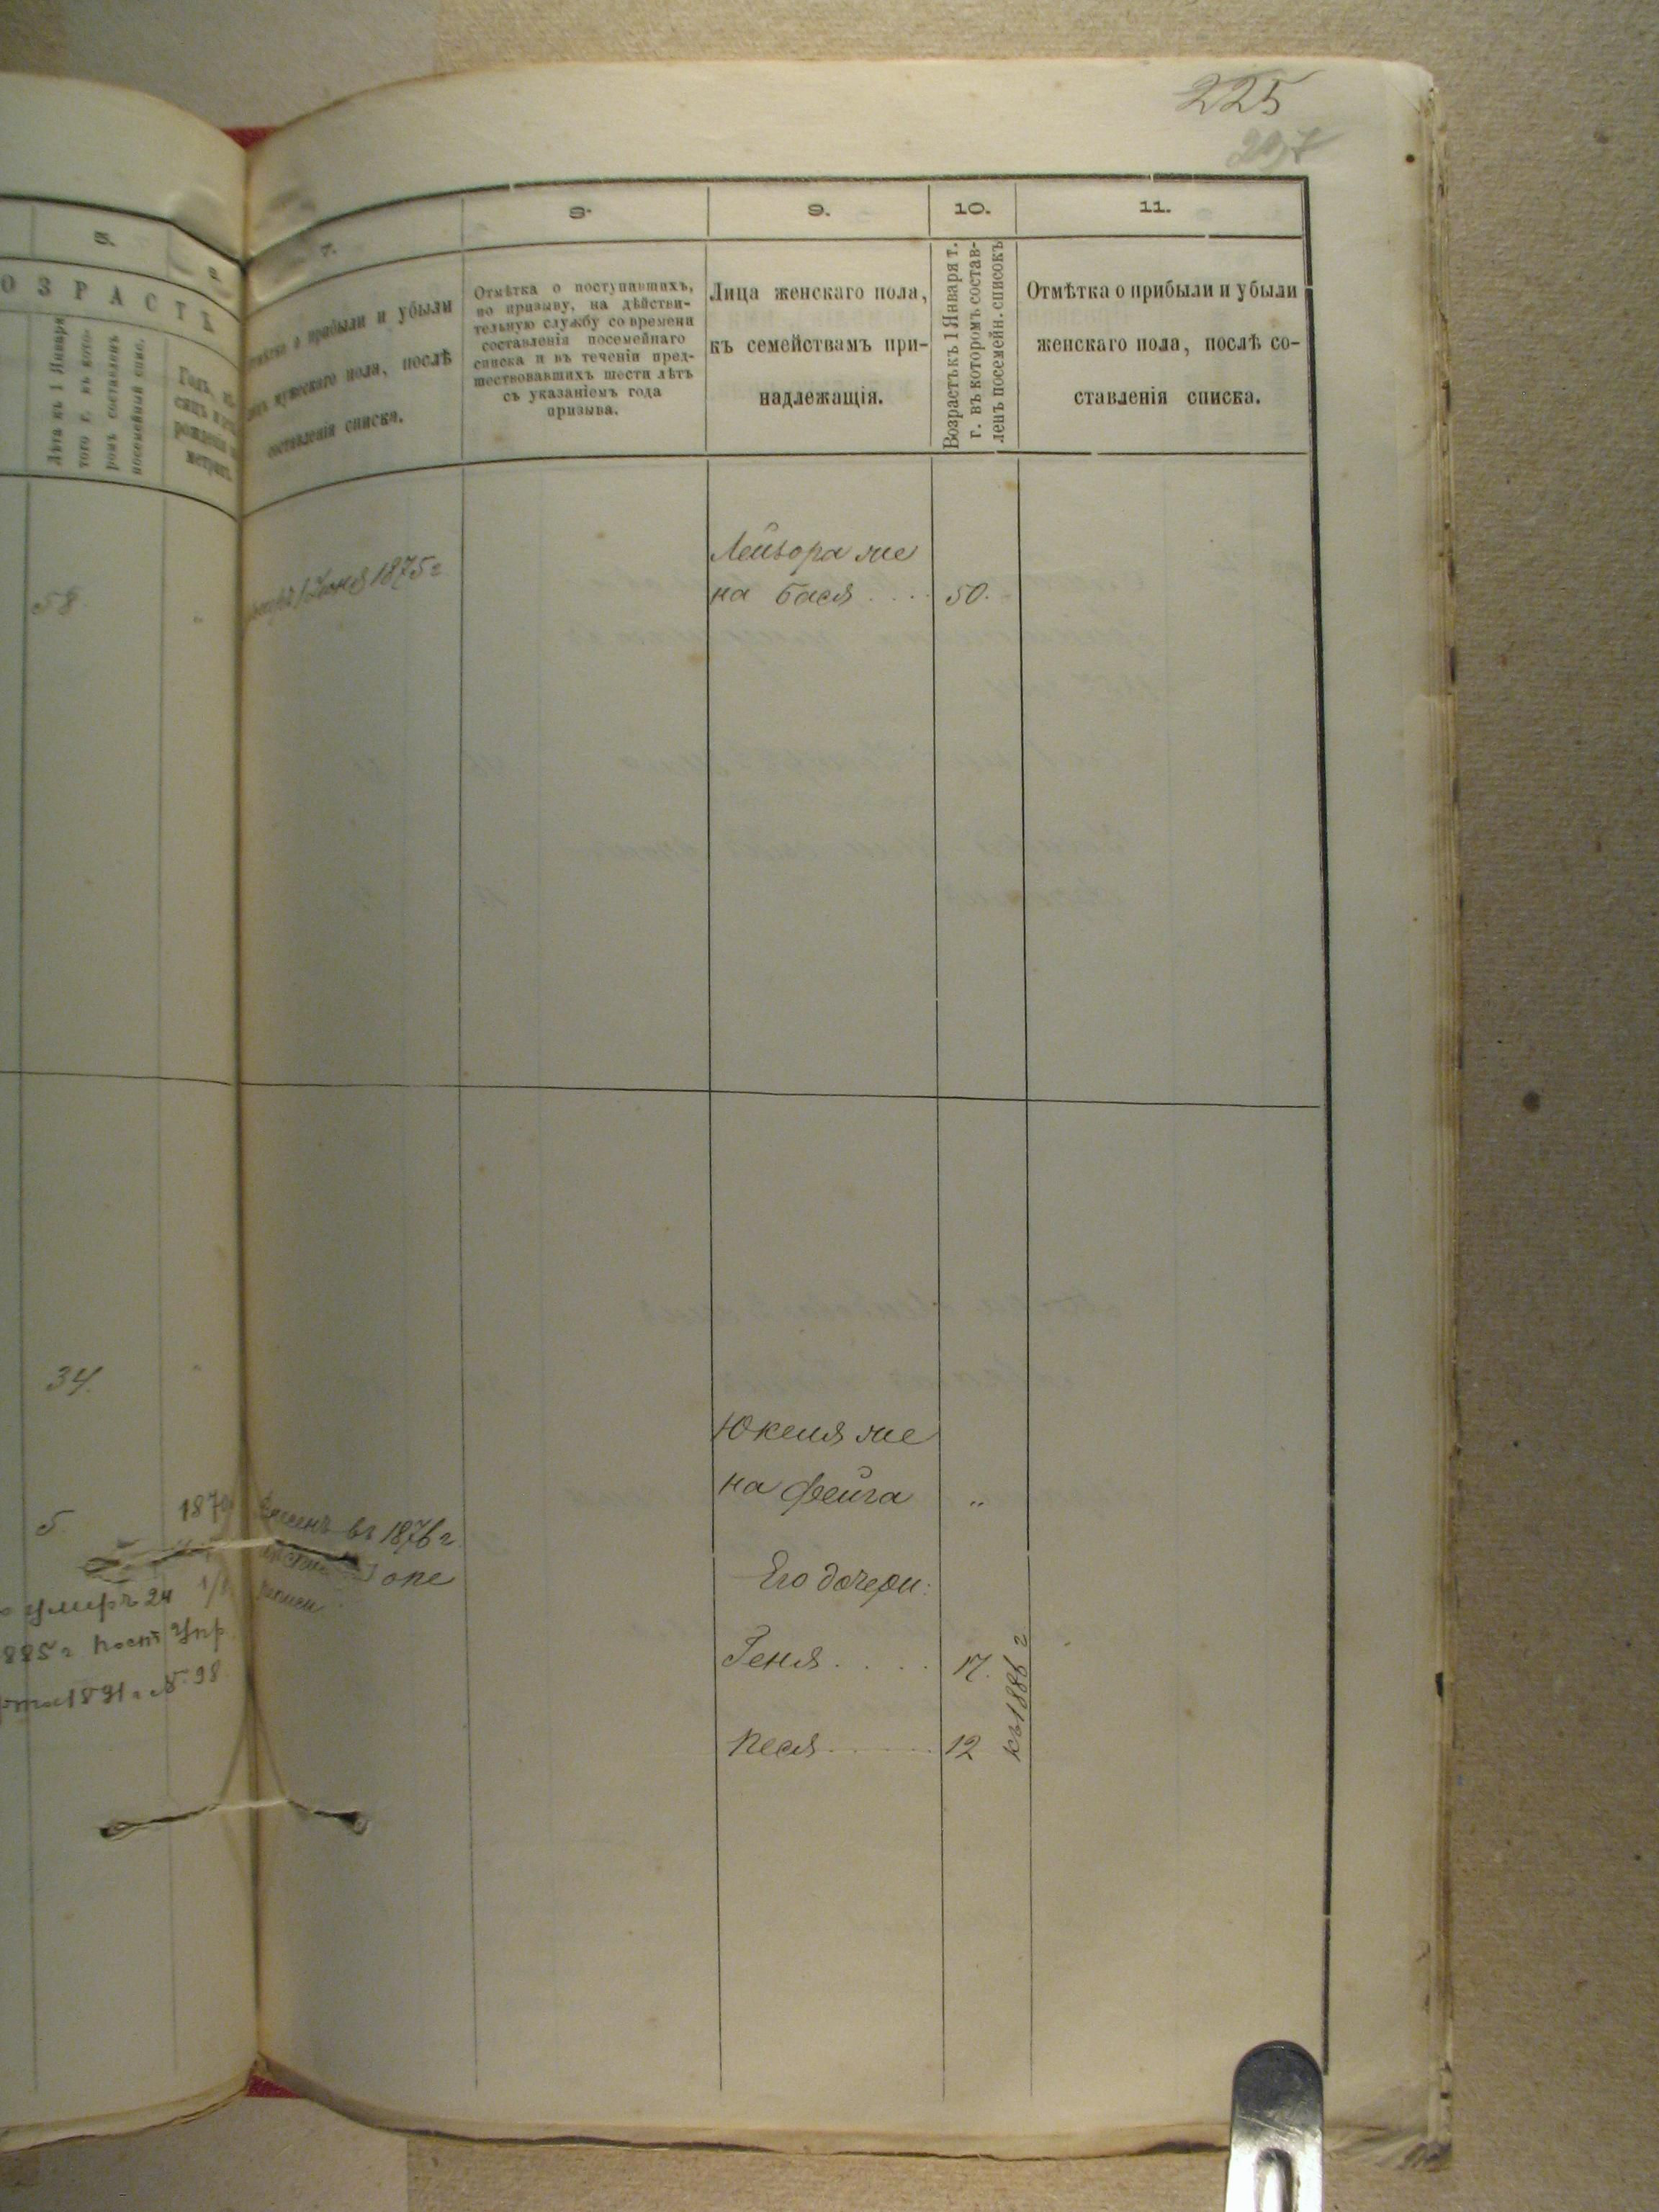 225
5.
7.
8.
9.
10.
11.
ОЗРАСТЪ
Лѣта къ 1 Января
того г. въ кото-
ромъ составленъ
посемейный спис.
Годъ,
рожденія
прибыли и убыли
мужескаго пола, послѣ
составленія списка.
Отмѣтка о поступившихъ,
по призыву, на дѣйстви-
тельную службу со времени
составленія посемейнаго
списка и въ теченіи пред-
шествовавшихъ шести лѣтъ
съ указаніемъ года
призыва.
Лица женскаго пола,
къ семействамъ при-
надлежащія.
Возрастъ къ 1 Января т.
г. въ которомъ состав-
ленъ посемейн. списокъ
Отмѣтка о прибыли и убыли
женскаго пола, послѣ со-
ставленія списка.
58
Іюня 1875 г
Лейзора же
на Бася .... 50.
34.
Юкеля же
на Фейга "
5
въ 1876 г
Его дочери:
умеръ 24
Геня .... 17.
885 г
1891 г № 98
Песя ..... 12
къ 1886 г